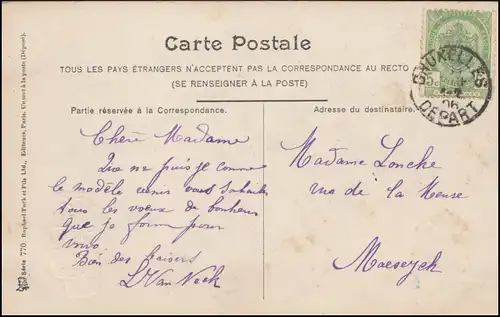 Carte Postale
TOUS LES PAYS ÉTRANGERS N'ACCEPTENT PAS LA CORRESPONDANCE AU RECTO
(SE RENSEIGNER À LA POSTE)
Partie réservée à la Correspondance.
Adresse du destinataire.
Chère Madame
Que ne puis je comme
le modèle vous souhaiter
tous les voeux de bonheur
que je form pour
vous
Bon des baisers
L Van Neck
Madame Loncke
rua de la Meuse
Maeseyck
BRUXELLES
06
DEPART
Série 770 Raphael Tuck et Fils Ltd., Editeurs, Paris. Un mot à la poste (Déposé).